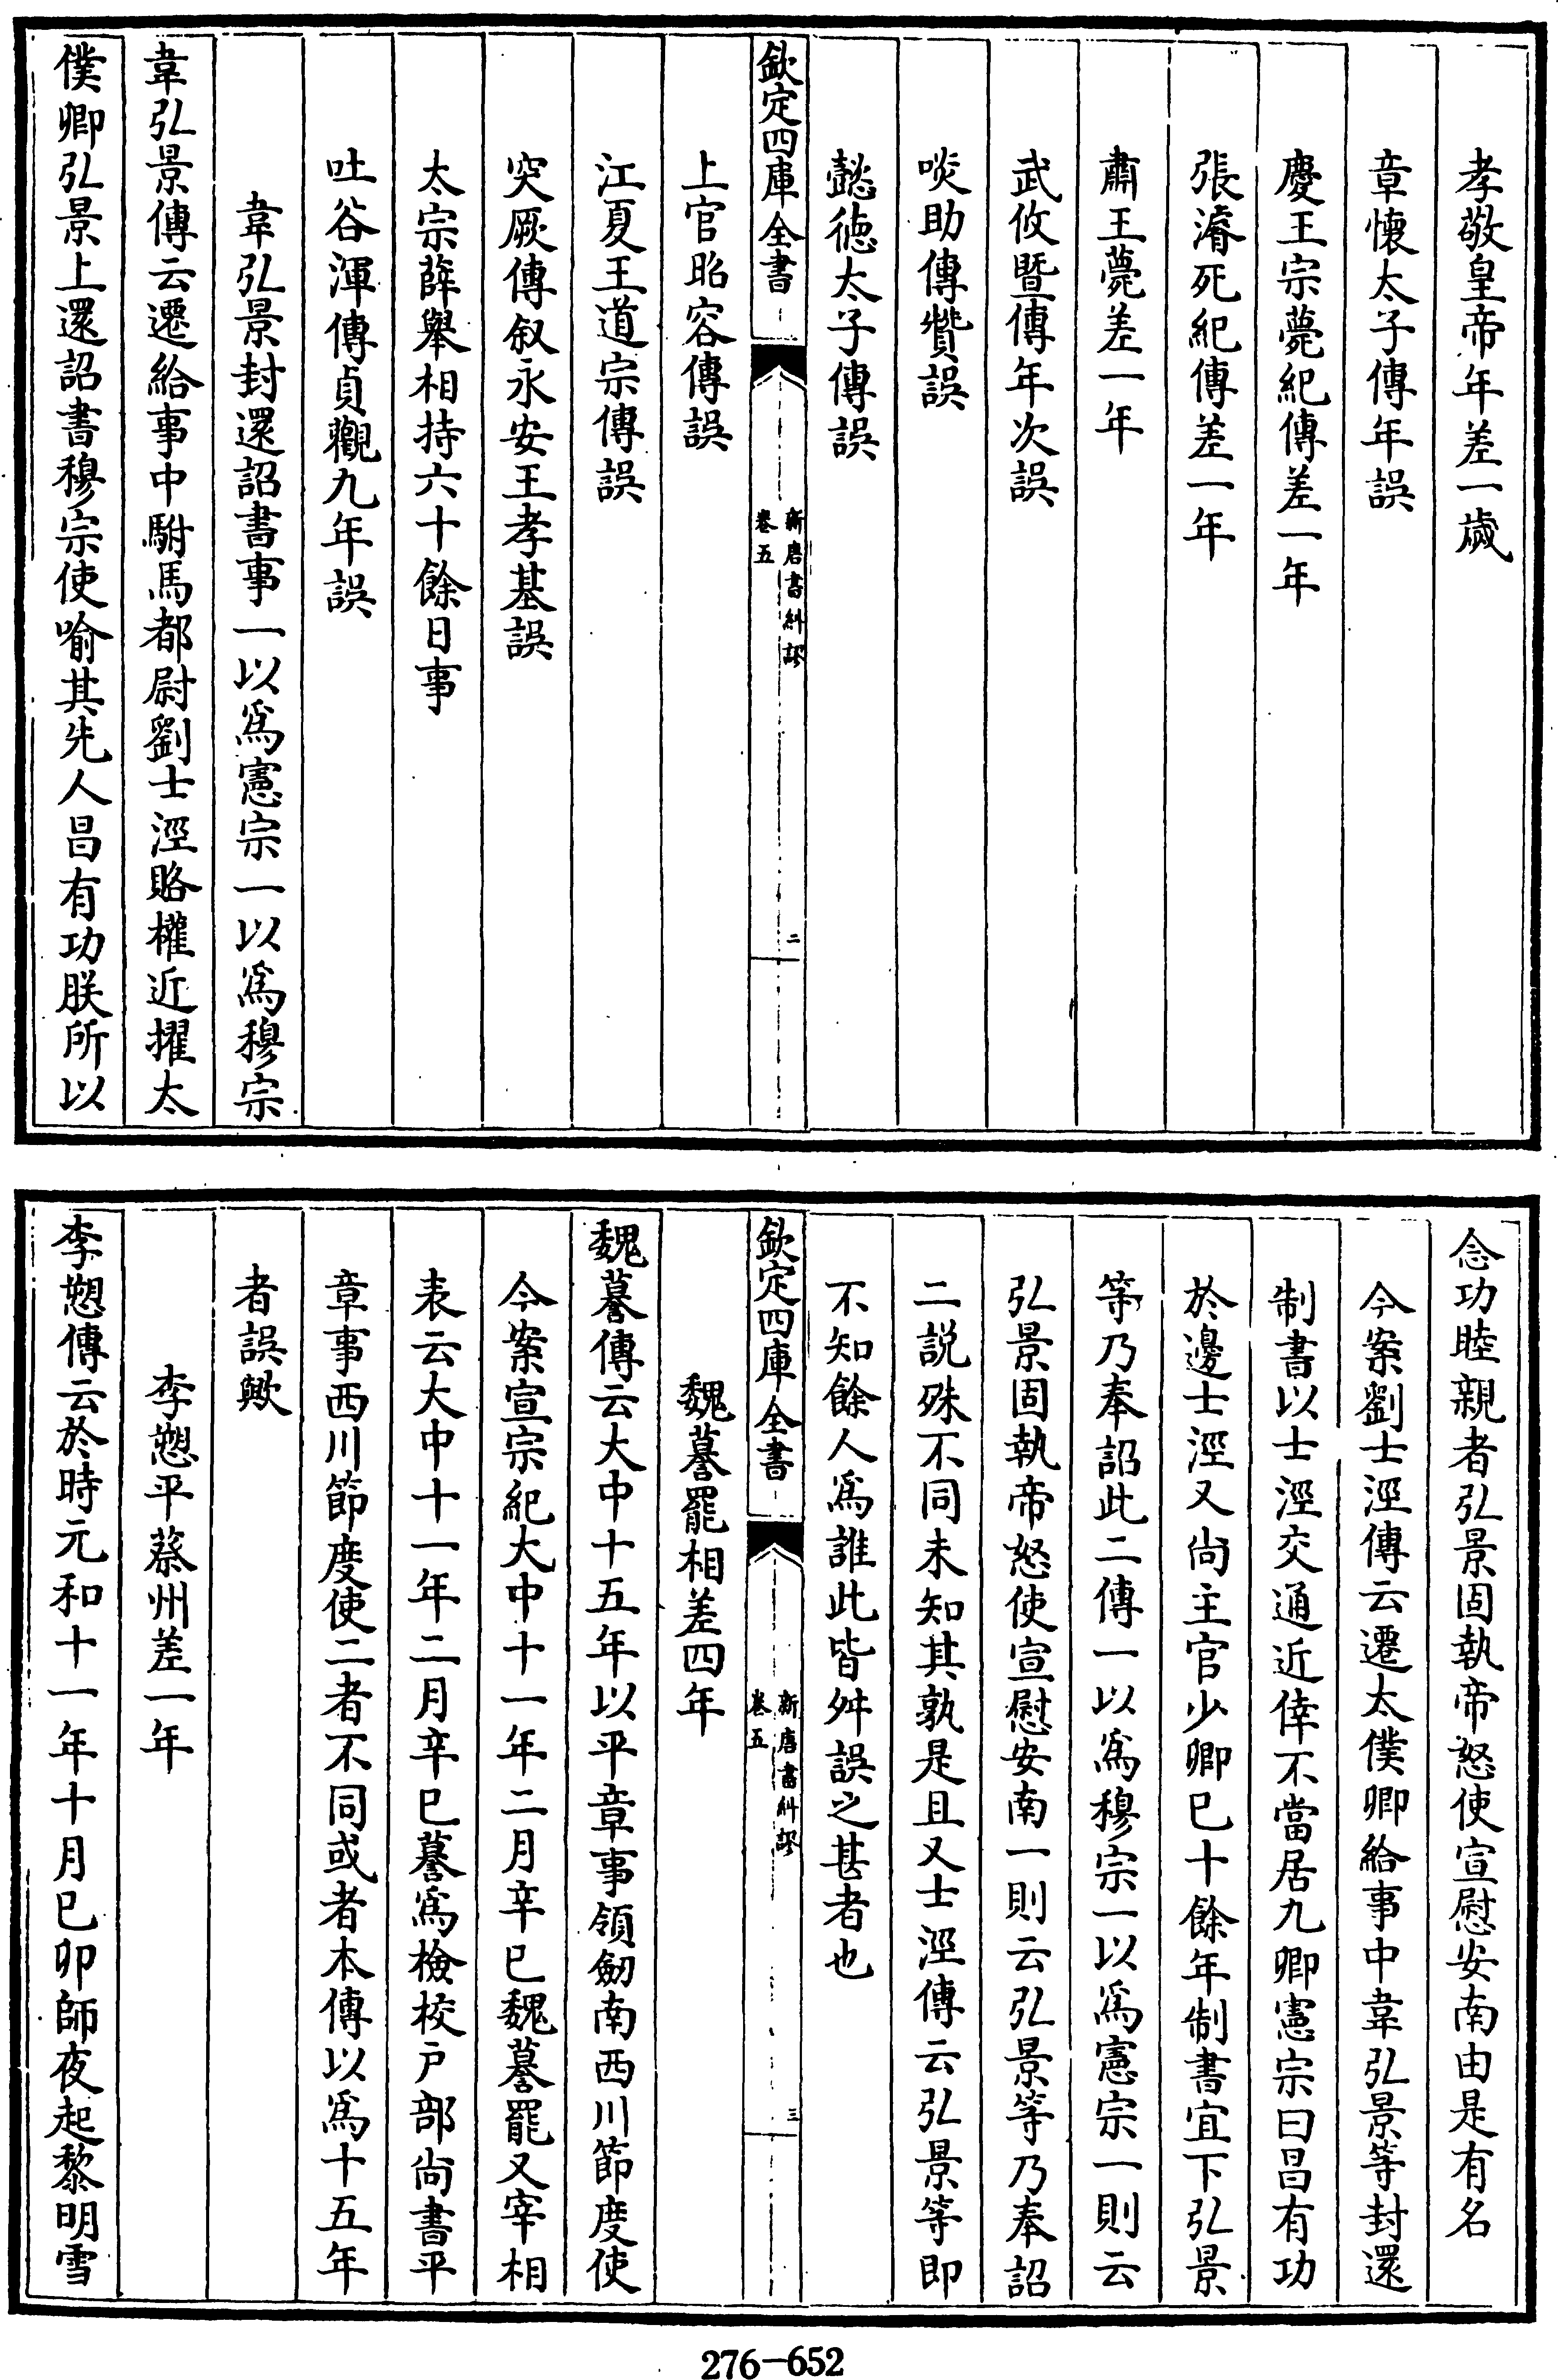 孝敬皇帝年差一歲
章懷太子傳年誤
慶王宗薨紀傳差一年
張濬死紀傳差一年
肅王薨差一年
武攸暨傳年次誤
啖助傳贊誤
懿德太子傳誤
欽定四庫全書
新唐書糾謬
卷五
二
上官昭容傳誤
江夏王道宗傳誤
突厥傳叙永安王孝基誤
太宗薛舉相持六十餘日事
吐谷渾傳貞觀九年誤
韋弘景封還詔書事一以爲憲宗一以爲穆宗
韋弘景傳云遷給事中駙馬都尉劉士涇賂權近擢太
僕卿弘景上還詔書穆宗使喻其先人昌有功朕所以
念功睦親者弘景固執帝怒使宣慰安南由是有名
今案劉士涇傳云遷太僕卿給事中韋弘景等封還
制書以士涇交通近倖不當居九卿憲宗曰昌有功
於邊士涇又尚主官少卿巳十餘年制書宜下弘景
等乃奉詔此二傳一以爲穆宗一以爲憲宗一則云
弘景固執帝怒使宣慰安南一則云弘景等乃奉詔
二説殊不同未知其孰是且又士涇傳云弘景等即
不知餘人爲誰此皆舛誤之甚者也
欽定四庫全書
新唐書糾謬
卷五
三
魏謩罷相差四年
魏謩傳云大中十五年以平章事領劒南西川節度使
今案宣宗紀大中十一年二月辛巳魏謩罷又宰相
表云大中十一年二月辛巳謩爲檢校户部尚書平
章事西川節度使二者不同或者本傳以爲十五年
者誤歟
李愬平蔡州差一年
李愬傳云於時元和十一年十月巳卯師夜起黎明雪
276-652